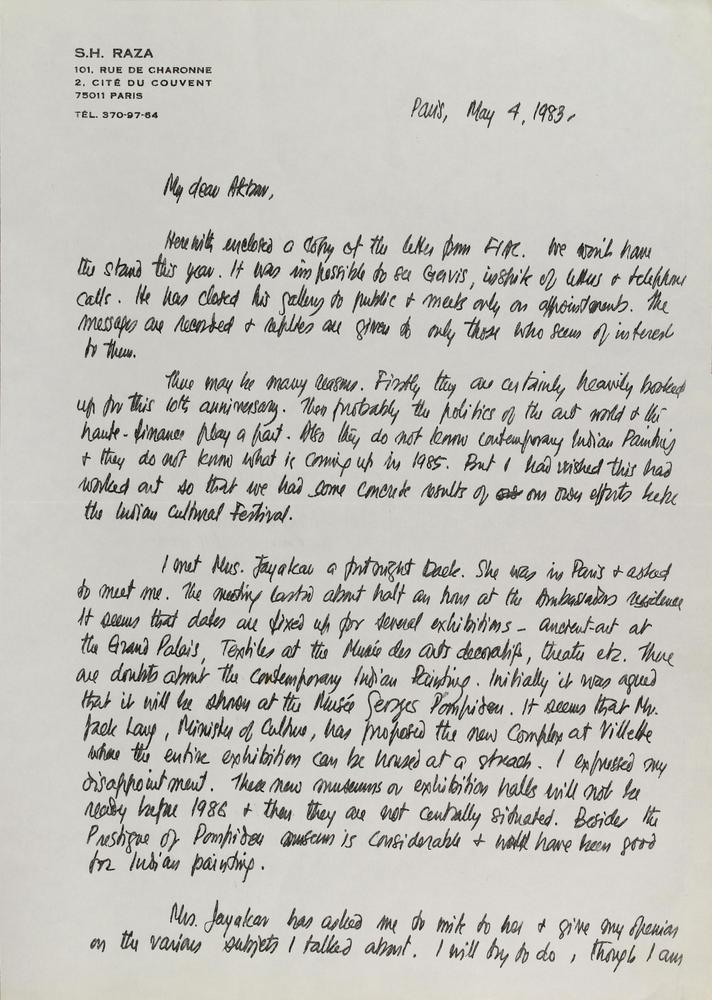 S.H. RAZA
101, RUE DE CHARONNE
2, CITÉ DU COUVENT
75011 PARIS
TÉL. 370-97-64
Paris, May 4, 1983.
My dear Akbar,
Herewith enclosed a copy of the letter from FIAC. We won't have
the stand this year. It was impossible to see Gervis, inspite of letters + telephone
calls. He has closed his gallery to public + meets only on appointments. The
messages are recorded + replies are given to only those who seem of interest
to them.
There may be many reasons. Firstly they are certainly heavily booked
up for this 10th anniversary. Then probably the politics of the art world + the
haute-finance play a part. Also they do not know contemporary Indian Painting
+ they do not know what is coming up in 1985. But I had wished this had
worked out so that we had some concrete results of our own efforts before
the Indian Cultural Festival.
I met Mrs. Jayakar a fortnight back. She was in Paris + asked
to meet me. The meeting lasted about half an hour at the Ambassadors residence
It seems that dates are fixed up for several exhibitions - ancient-art at
the Grand Palais, Textiles at the Musée des arts decoratifs, theatre etc. There
are doubts about the contemporary Indian Painting. Initially it was agreed
that it will be shown at the Musée Georges Pompidou. It seems that Mr.
Jack Lang, Minister of Culture, has proposed the new Complex at Villette
where the entire exhibition can be housed at a streach. I expressed my
disappointment. These new museums or exhibition halls will not be
ready before 1986 + then they are not centrally situated. Besides the
Prestigue of Pompidou museum is considerable + would have been good
for Indian painting.
Mrs. Jayakar has asked me to write to her + give my opinions
on the various subjets I talked about. I will try to do, though I am